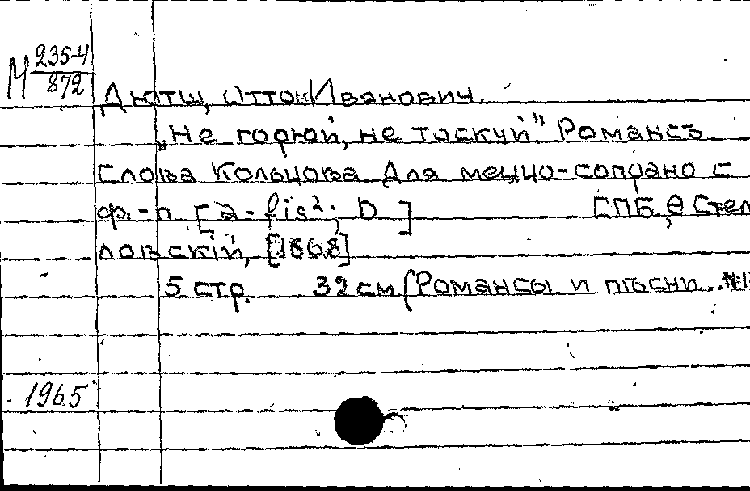 М 235-4
872
Дютш, Отто Иванович.
„Не горюй, не тоскуй" Романсъ
Слова Кольцова Для меццо-сопрано с
ф.-п. [a-fis²; D] СПБ, Ѳ Стел
ловскій, [1868]
5 стр. 32 см (Романсы и пѣсни..
1965